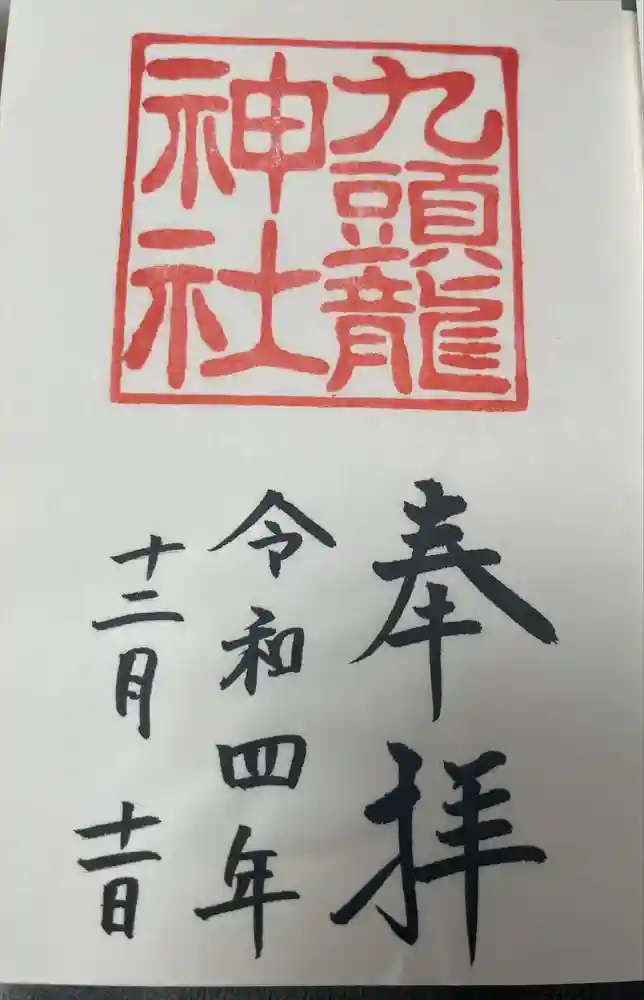 九頭龍
神社
奉拝
令和四年
十二月十一日